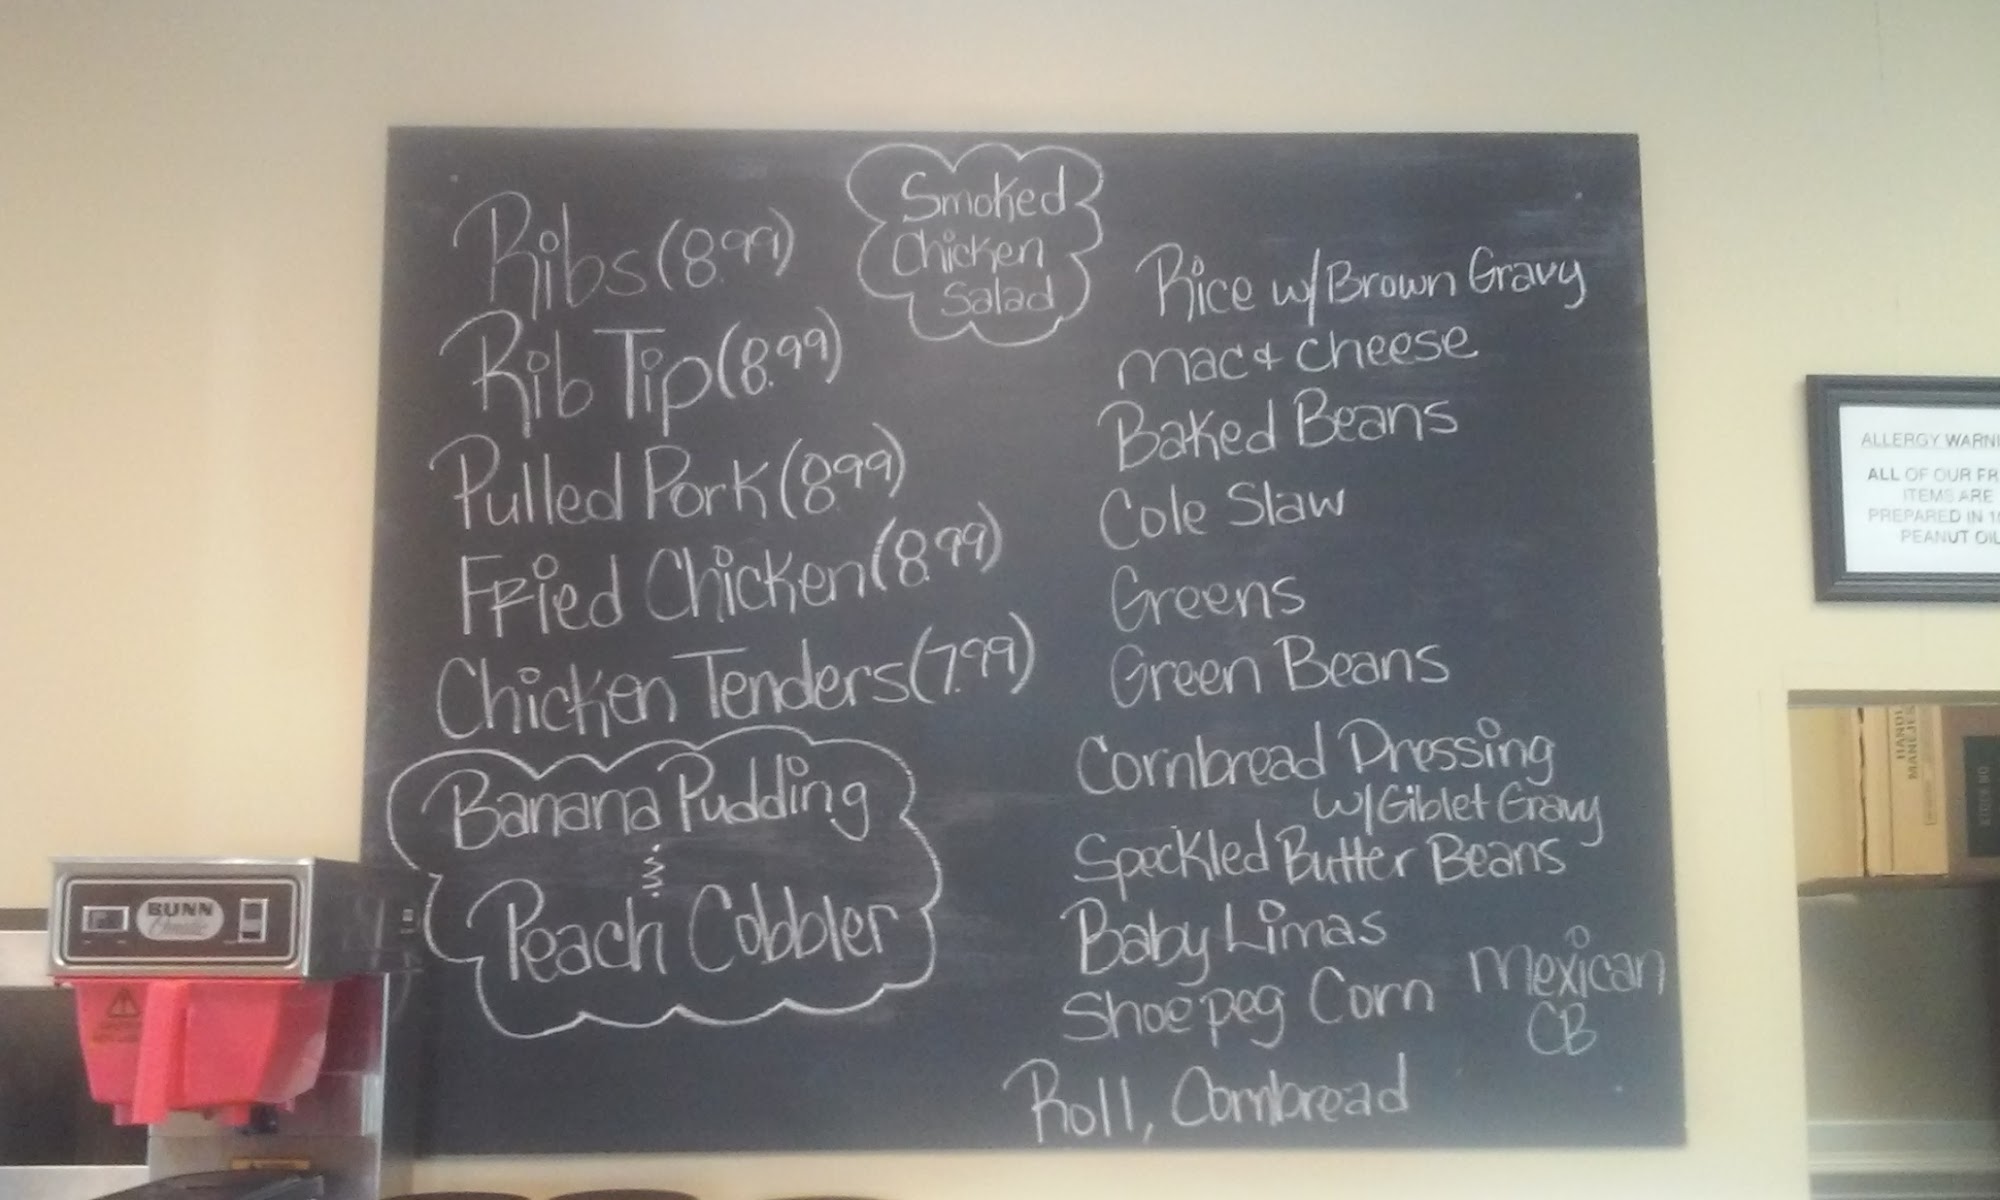 Smoked
Chicken
Salad
Ribs (8.99)
Rib Tip (8.99)
Pulled Pork (8.99)
Fried Chicken (8.99)
Chicken Tenders (7.99)
Banana Pudding
Peach Cobbler
Rice w/ Brown Gravy
mac & cheese
Baked Beans
Cole Slaw
Greens
Green Beans
Cornbread Dressing
w/ Giblet Gravy
Speckled Butter Beans
Baby Limas
Shoepeg Corn
Mexican
CB
Roll, Cornbread
ALLERGY WARNI
ALL OF OUR FR
ITEMS ARE
PREPARED IN 1
PEANUT OIL
BUNN
Omatic